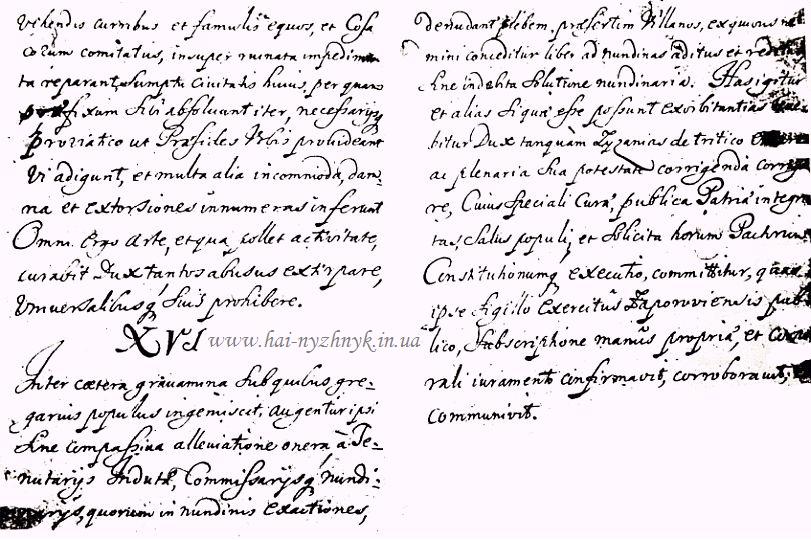 vehendis curribus et famulis equos, et Cosa
corum comitatus, insuper ruinata impedimen
ta reparant, Sumptu Civitatis huius, per quam
præfixum sibi absolvunt iter, necessarÿq
proviatico ut Præsides Urbis provideant
vi adigunt, et multa alia incommoda, dam,
na et extorsiones innumeras inferunt
Omni Ergo Arte, et qua pollet activitate,
curabit Dux tantos abusus extirpare,
Universalibusq suis prohibere.
XVI www.hai-nyzhnyk.in.ua
Inter cætera gravamina Sub quibus gre-
garius populus ingemiscit, augentur ipsi
sine compassiva alleviatione onera, à Te-
nutarÿs Inductæ, Commissarÿsq nundi-
quorum in nundinis exactiones,
denudant plebem, præsertim Villanos, ex quibus
mini conceditur liber ad nundinas aditus et
sine indebita Solutione nundinaria. Has igitur
et alias si quæ esse possunt exorbitantias
bitur Dux tanquàm Zyzanias de tritico
ac plenaria sua potestate corrigenda
re, Cuius speciali Curæ, publica Patriæ integri
tas, Salus populi, et solicita horum Pactorum
Constitutionumq executio, committitur, quæ
ipse sigillo Exercitus Zaporoviensis pub
lico, Subscriptione manus propriæ, et
rali iuramento confirmavit, corroboravit,
communivit.